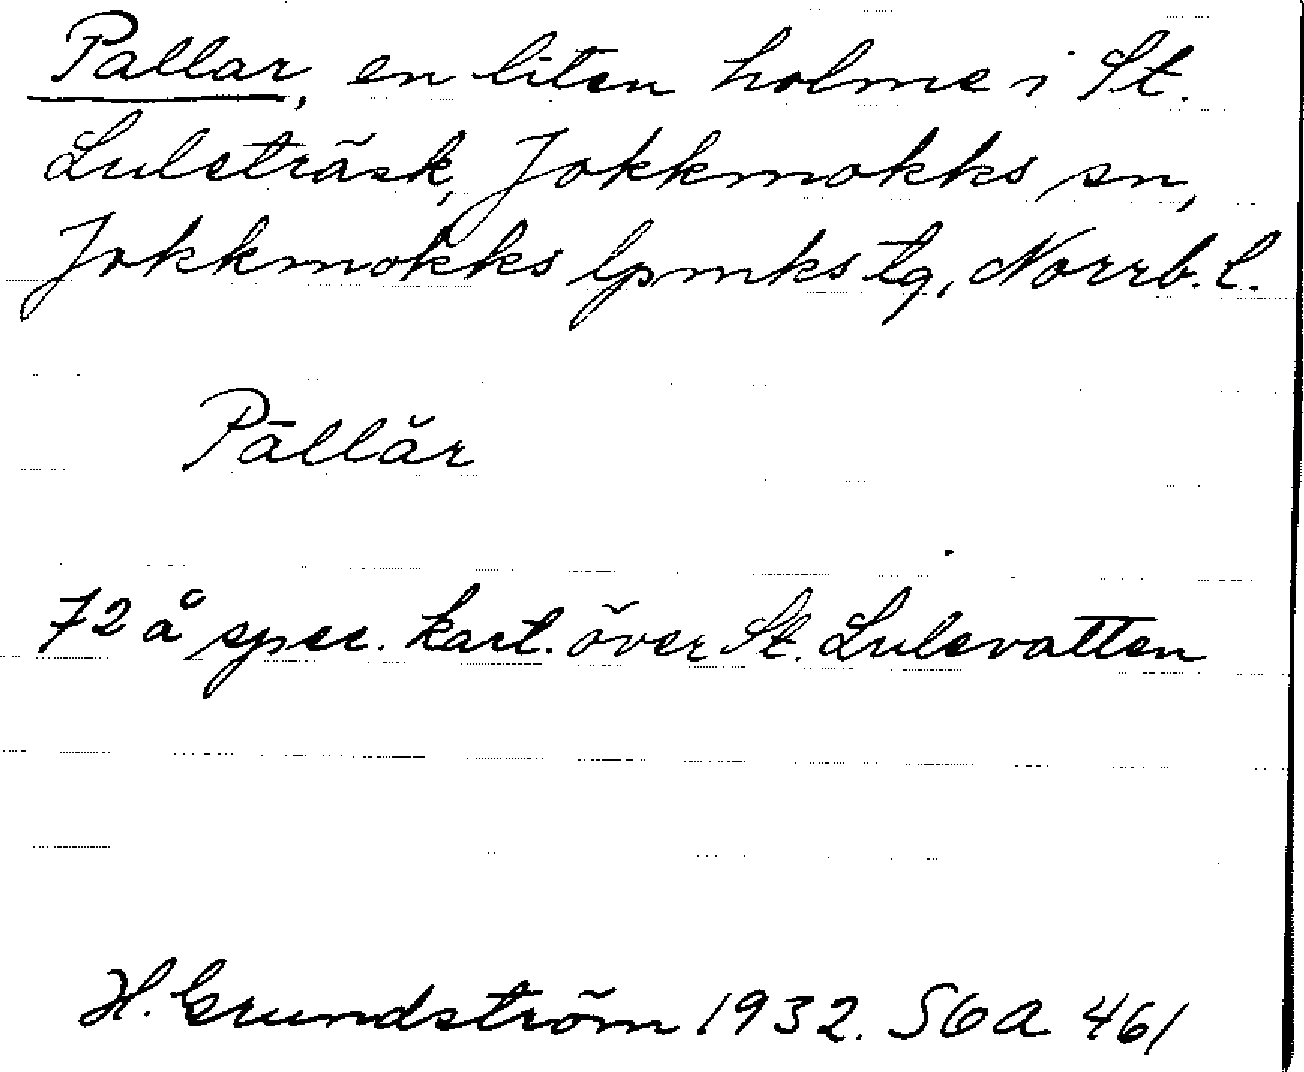 Pallar, en liten holme i St.
Luleträsk, Jokkmokks sn,
Jokkmokks lpmks tg, Norrb. l.
Pāllăr
72 å spec. kart. över St. Lulevatten
H. Grundström 1932. SOA 461